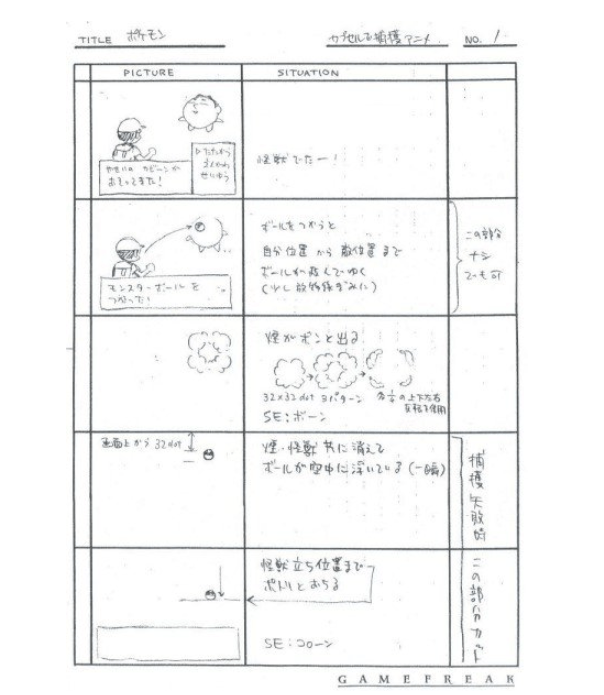 TITLE ポケモン
カプセルで捕獲アニメ
NO. 1
PICTURE
SITUATION
やせいの カビーンが
おそってきた!
▷たたかう
せいゆう
怪獣でたー!
モンスターボールを
つかった!
ボールをつかうと
自分位置から敵位置まで
ボールが飛んでゆく
(少し放物線ぎみに)
この部分
ナシ
でも可
煙がボンと出る
32×32dot 3パターン
各言の上下左右
反転を使用
SE:ボーン
画面上から32dot
煙・怪獣共に消えて
ボールが空中に浮いている(一瞬)
捕獲失敗時
この部分カット
怪獣立ち位置まで
ポトリとおちる
SE:コローン
GAMEFREAK